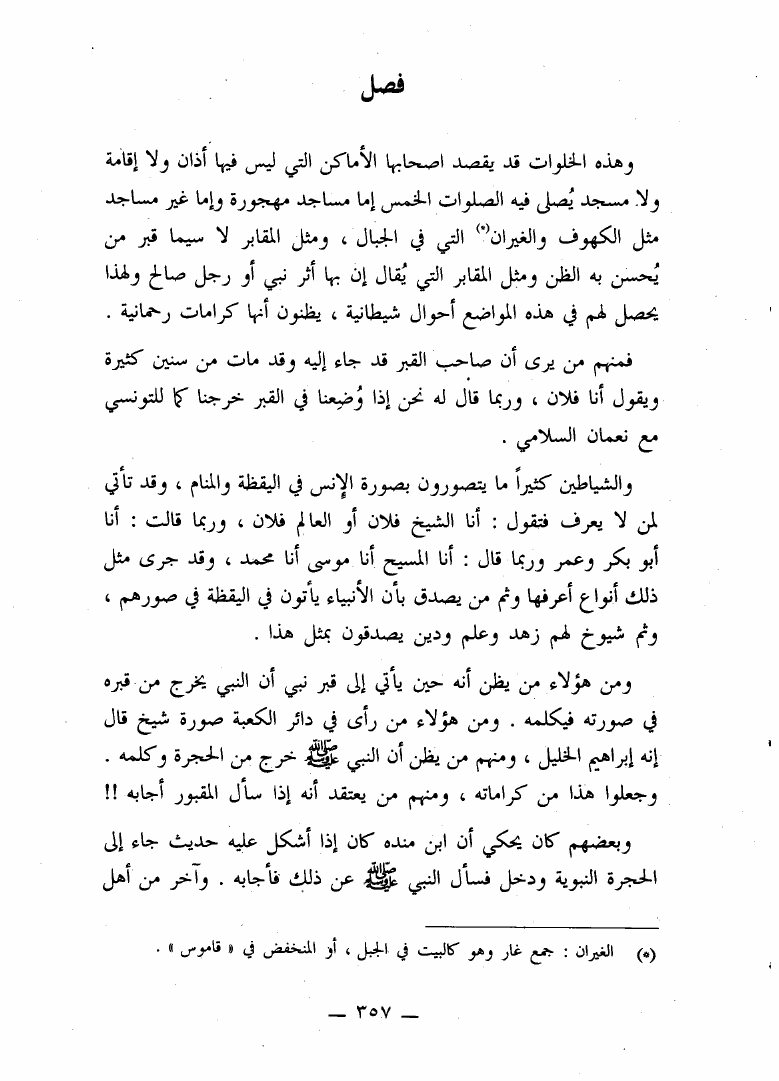 فصل
وهذه الخلوات قد يقصد اصحابها الأماكن التي ليس فيها أذان ولا إقامة
ولا مسجد يُصلى فيه الصلوات الخمس إما مساجد مهجورة وإما غير مساجد
مثل الكهوف والغيران(*) التي في الجبال ، ومثل المقابر لا سيما قبر من
يُحسن به الظن ومثل المقابر التي يُقال إن بها أثر نبي أو رجل صالح ولهذا
يحصل لهم في هذه المواضع أحوال شيطانية ، يظنون أنها كرامات رحمانية .
فمنهم من يرى أن صاحب القبر قد جاء إليه وقد مات من سنين كثيرة
ويقول أنا فلان ، وربما قال له نحن إذا وُضِعنا في القبر خرجنا كما للتونسي
مع نعمان السلامي .
والشياطين كثيراً ما يتصورون بصورة الإنس في اليقظة والمنام ، وقد تأتي
لمن لا يعرف فتقول : أنا الشيخ فلان أو العالم فلان ، وربما قالت : أنا
أبو بكر وعمر وربما قال : أنا المسيح أنا موسى أنا محمد ، وقد جرى مثل
ذلك أنواع أعرفها وثم من يصدق بأن الأنبياء يأتون في اليقظة في صورهم ،
وثم شيوخ لهم زهد وعلم ودين يصدقون بمثل هذا .
ومن هؤلاء من يظن أنه حين يأتي إلى قبر نبي أن النبي يخرج من قبره
في صورته فيكلمه . ومن هؤلاء من رأى في دائر الكعبة صورة شيخ قال
إنه إبراهيم الخليل ، ومنهم من يظن أن النبي ﷺ خرج من الحجرة وكلمه .
وجعلوا هذا من كراماته ، ومنهم من يعتقد أنه إذا سأل المقبور أجابه !!
وبعضهم كان يحكي أن ابن منده كان إذا أشكل عليه حديث جاء إلى
الحجرة النبوية ودخل فسأل النبي ﷺ عن ذلك فأجابه . وآخر من أهل
(*) الغيران : جمع غار وهو كالبيت في الجبل ، أو المنخفض في « قاموس » .
— ٣٥٧ —